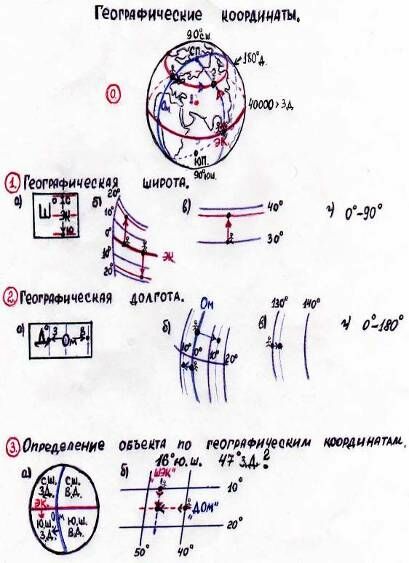 Географические координаты.
90° с.ш.
С.П.
180° д.
0
Ом
40000 > 3д.
ЭК.
Ю.П.
90° ю.ш.
1 Географическая широта.
а) б) в) г) 0°-90°
Ш° С
ЭК
Ю
20°
10°
0°
10°
20°
ЭК
40°
30°
2 Географическая долгота.
а) б) в) г) 0°-180°
Д° З Ом В
Ом
10° 0° 10° 20°
130° 140°
3 Определение объекта по географическим координатам.
16° ю.ш. 47° з.д.?
а) б)
с.ш. с.ш.
з.д. в.д.
ЭК.
0 м
ю.ш. ю.ш.
з.д. в.д.
"ШЭК"
10°
"ДОМ"
20°
50° 40°